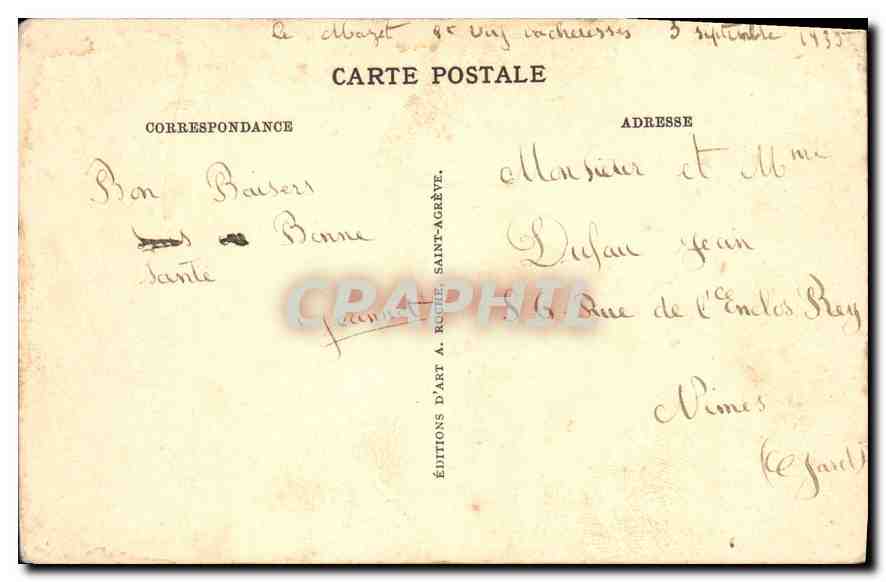 Le Mazet St Voy 3 septembre 1935
CARTE POSTALE
CORRESPONDANCE
ADRESSE
Bon Baisers
Bonne
Santé
Jeannot
ÉDITIONS D'ART A. ROCHE, SAINT-AGRÈVE.
Monsieur et Mme
Dufau Jean
56 Rue de l'Enclos Rey
Nimes
(Gard)
CPAPHIL